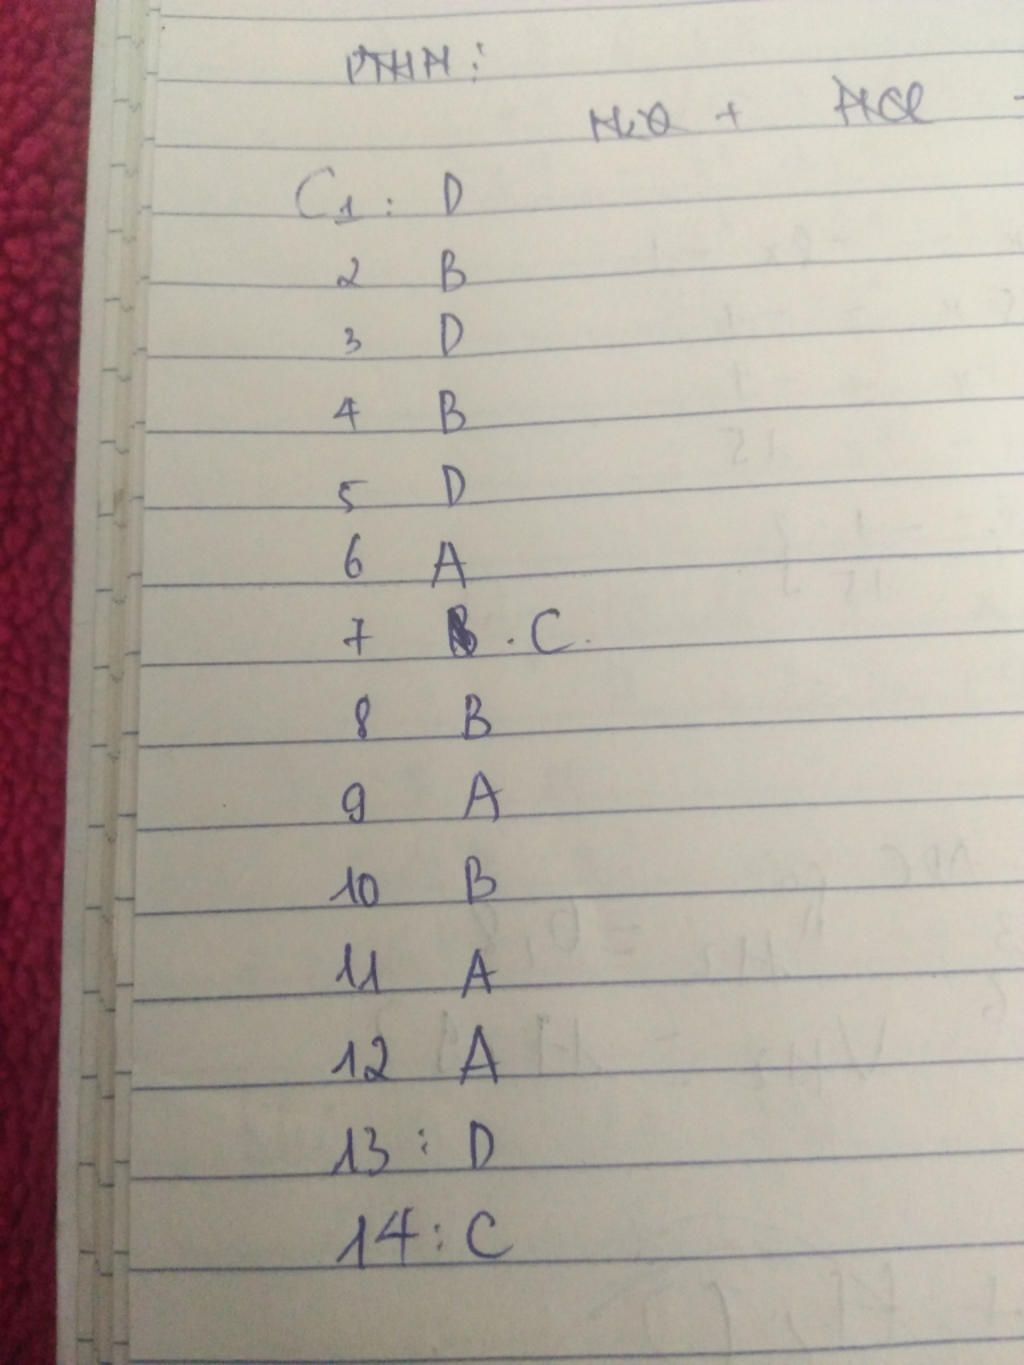 PTHH :
H₂O + HCl
C1 : D
2 B
3 D
4 B
5 D
6 A
7 B . C .
8 B
9 A
10 B
11 A
12 A
13 : D
14 : C